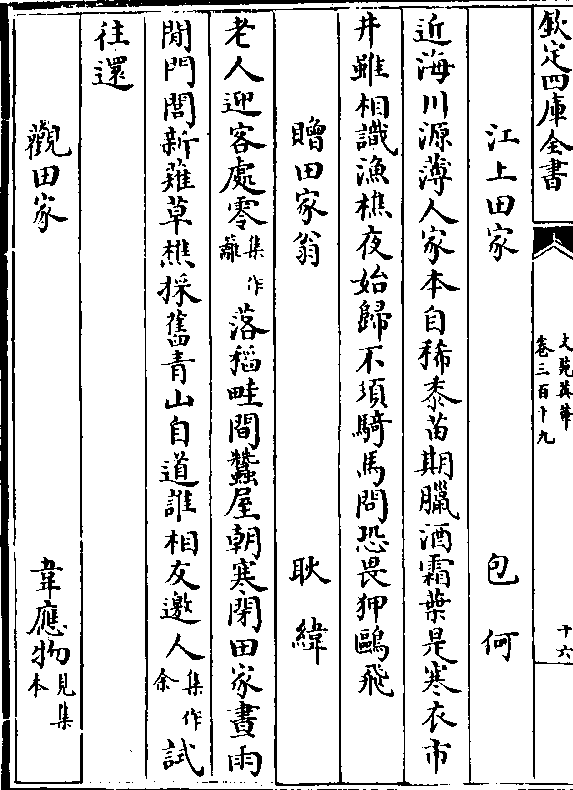 欽定四庫全書
文苑英華
卷三百十九
十六
江上田家
包何
近海川源薄人家本自稀黍苗期臘酒霜葉是寒衣市
井雖相識漁樵夜始歸不須騎馬問恐畏狎鷗飛
贈田家翁
耿緯
老人迎客處零集作籬落稻畦間蠶屋朝寒閉田家晝雨
閒門閭新薙草樵採舊青山自道誰相友邀人集作余試
往還
觀田家
韋應物見集本